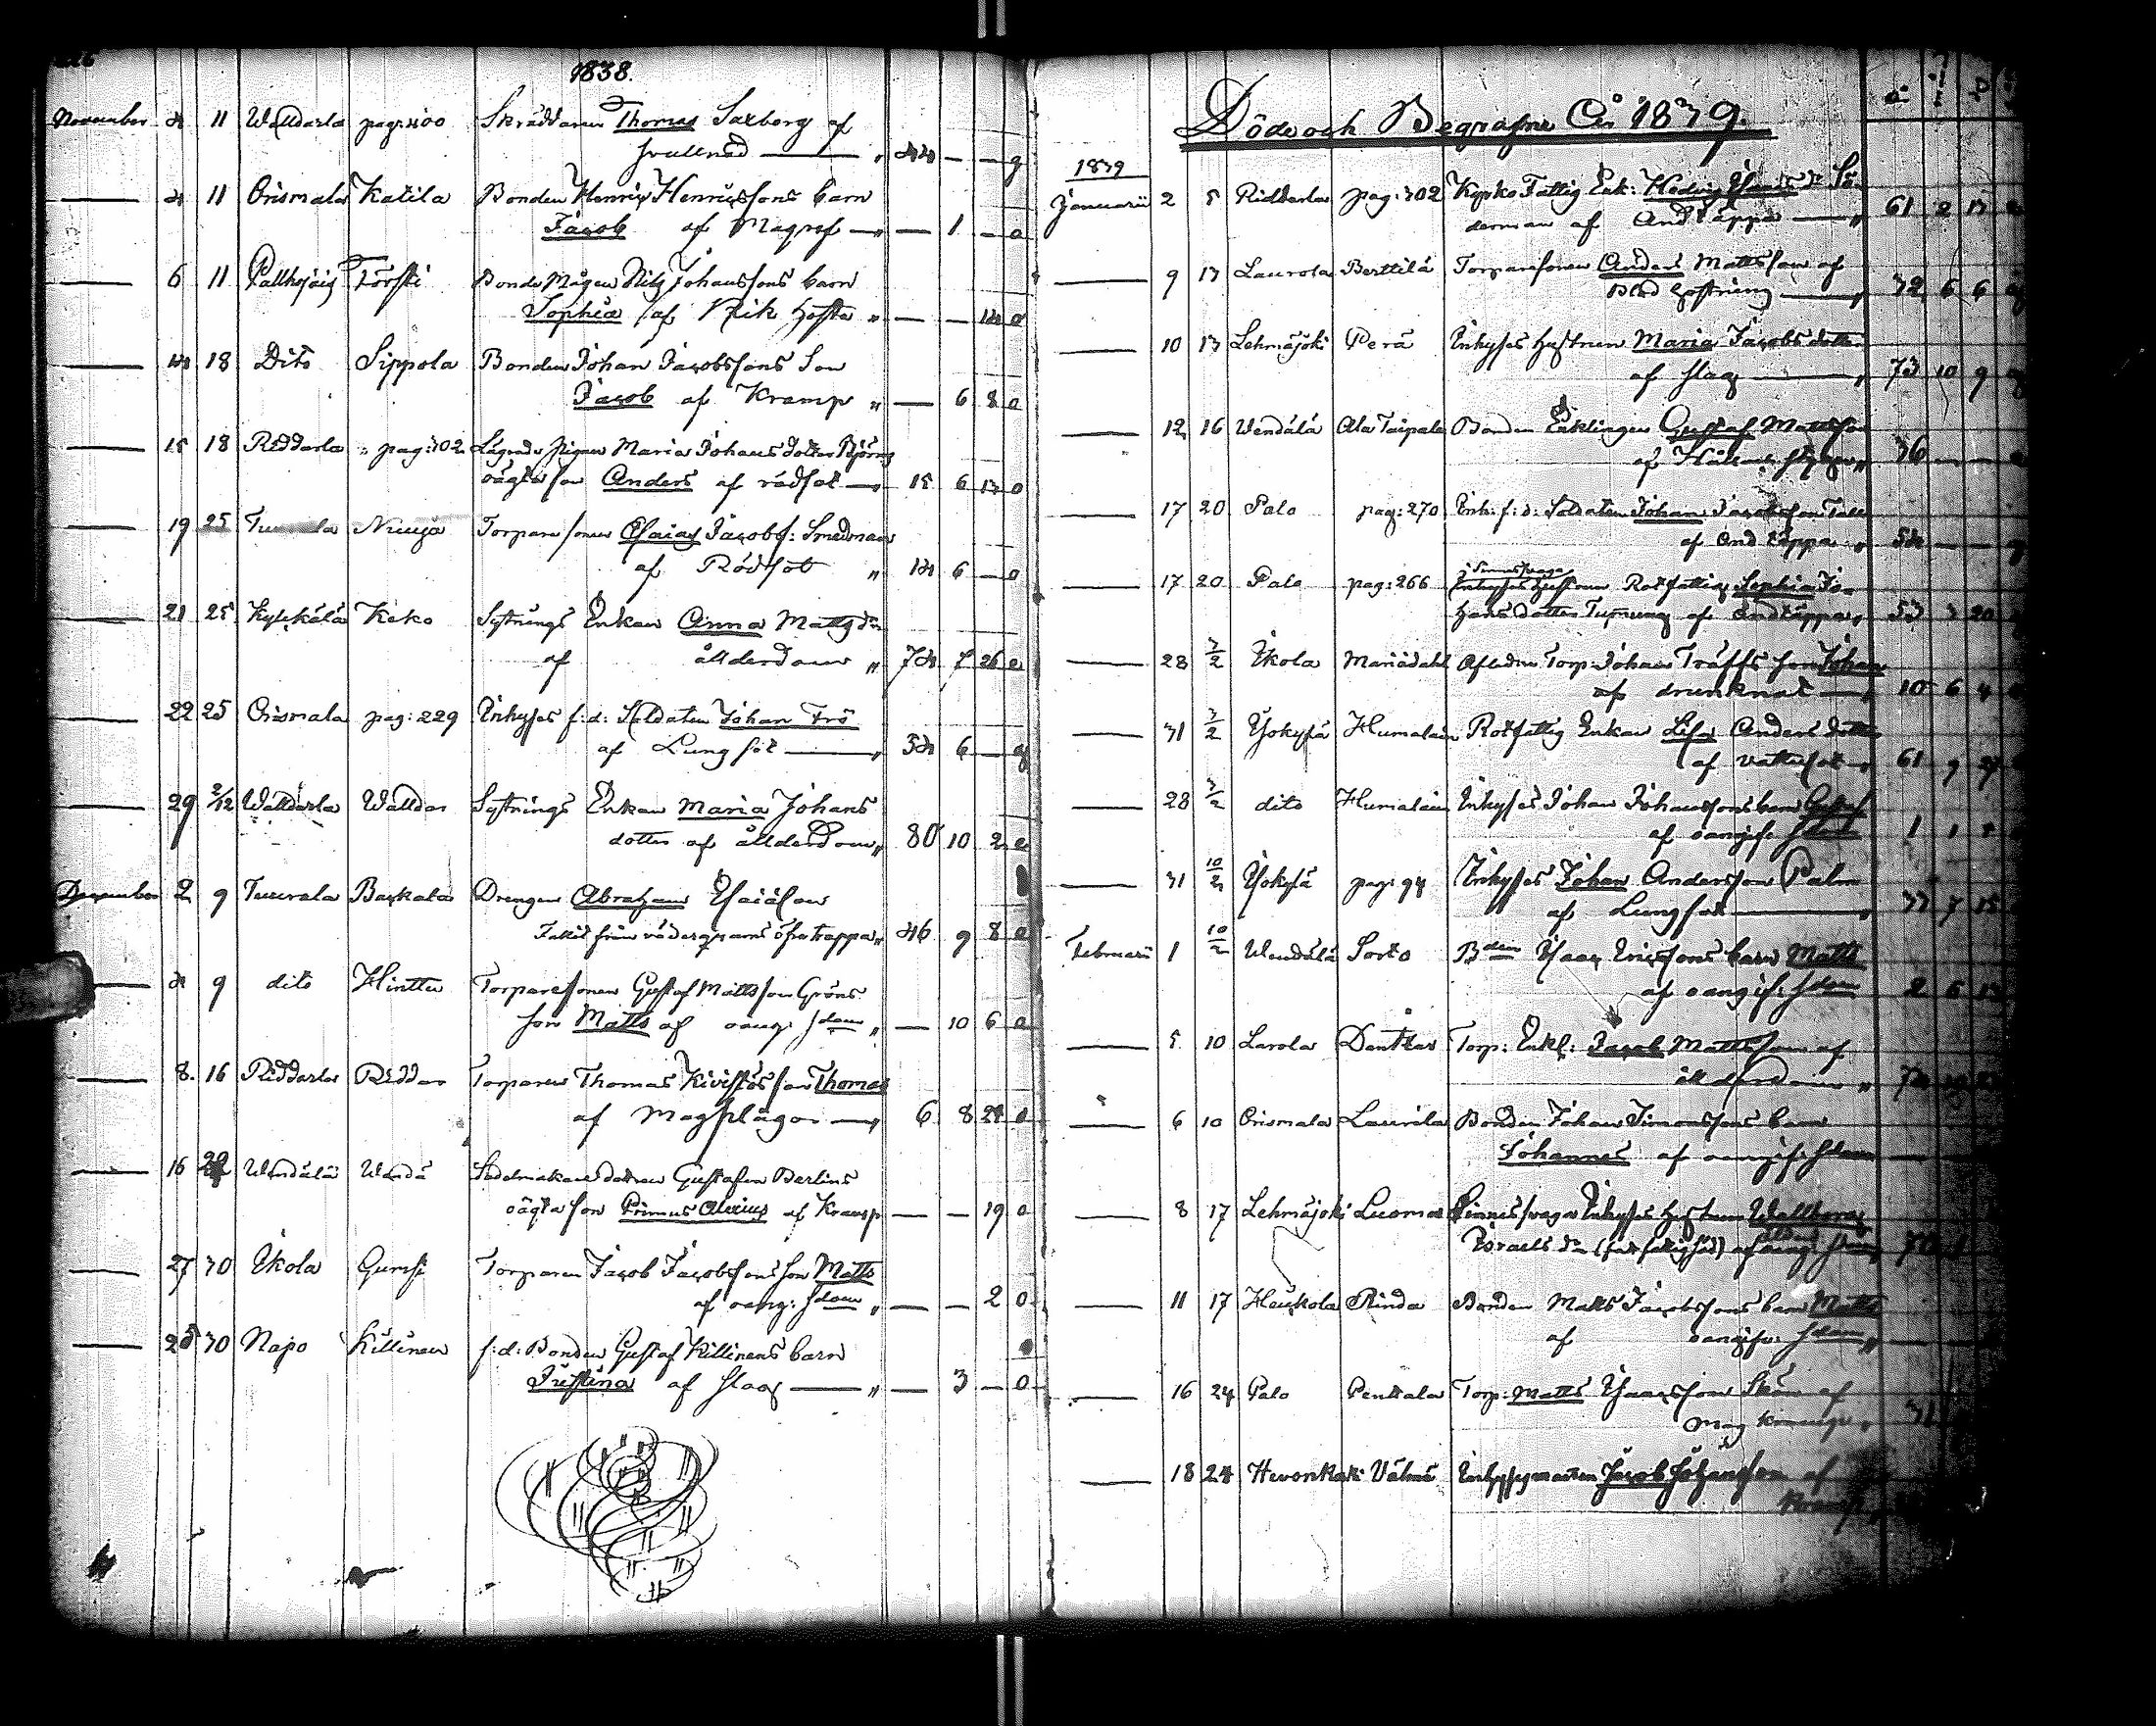 1838.
November 4 11 Walldarla pag: 400 Skräddaren Thomas Saxberg af
svullnad 44 — — g
4 11 Orismala Katila Bonden Henric Henricssons barn
Jacob af Magref — 1 — o
6 11 Palhojais Törsti Bonde Mågen Johanssons barn
Sophia af Kik hosta — — 14 o
14 18 Dito Sippola Bonden Johan Jacobssons Son
Jacob af Kramp — 6 8 o
15 18 Riddarla pag: 302 Lägrade Pigan Maria Johans dotter Björns
oägta son Anders af rödsot 15 6 13 o
19 25 Napo Torpare sonen Esaias Jacobs: Smedman
af Rödsot 14 6 — o
21 25 Kylkälä Keko Sytnings Enkan Anna Matts dr
af ållderdom 74 7 26 e
22 25 Orismala pag: 229 Inhyses f: d: Soldaten Johan Frö
af Lungsot 54 6 — g
29 2/12 Walldarla Walldar Sytnings Enkan Maria Johans
dotter af ållderdom 80 10 2 e
December 2 9 Tuurala Backala Drengen Abraham Esaiæson
Fallit från 46 9 8 o
4 9 dito Hintta Torparesonen Gustaf Mattsson Gröns
son Matts af oang: sjdom — 10 6 o
8 16 Riddarla Riddar Torparen Thomas Kivistös son Thomas
af Magplågor 6 8 24 o
16 Wendälä Wendä Sadelmakare dottren Gustafva Berlins
oägta son Primus Alexius af Kramp — — 19 o
27 30 Ikola Gumsi Torparen Jacob Jacobssons son Matts
af oang: sjdom — — 2 o
25 30 Napo Killinen f: d: Bonden Gustaf Killinens barn
Justina af slag — 3 — o
Döde och Begrafne År 1839.
1839
Januarii 2 5 Riddarla pag: 302 Kyrko Fattig Enk: Hedvig Isaacs dr Sö-
derman af Andtäppa 61 2 13
9 13 Laurola Berttilä Torparesonen Anders Mattsson af
Blod hostning 32 6 6
10 13 Lehmäjoki Perä Inhyses hustrun Maria Jacobs dotter
af slag 73 10 9
12 16 Wendälä Ala Taipale Bonden Enklingen Gustaf Mattsson
af 76 — —
17 20 Palo pag: 270 Inh: f: d: Soldaten Johan Jacobsson
af Andtäppa 54 — —
17 20 Palo pag: 266 Sinnessvaga
Inhyses hustrun Rotfattig Sophia Jo-
hans dotter af Andtäppa 53 3 20
28 3/2 Ikola Mariædahl Afledne Torp: Johan Träffs son Johan
af drunknat 10 6 4
31 3/2 Ysokylä Humalain Rotfattig Enkan Lisa Anders dotter
af vattusot 61 9
28 3/2 dito Humalain Inhyses Johan Johanssons barn Gustaf
af oangif: sjdom 1 1
31 10/2 Ysokylä pag: 94 Inhyses Johan Andersson Palm
af Lungsot 33 7 15
Februarii 1 10/2 Wendälä Sorto Bden Isaac Ericssons barn Matts
af oangif: sjdom 2 6 13
5 10 Larola Dantzar Torp: Enkl: Jacob Mattsson af
ållderdom
6 10 Orismala Laurila Bonden Johan Simonssons barn
Johannes af oangif: sjdom
8 17 Lehmäjoki Luoma Sinnessvaga Inhyses hustrun Wallborg
Israels dr af
11 17 Heikola Rinda Bonden Matts Jacobssons barn Matts
af oangifv: sjdom
16 24 Palo Penkala Torp: Matts Isaacsson Skön af
mag kramp 31
18 24 Hevonkoski Välmä Jacob Johansson af
Kramp